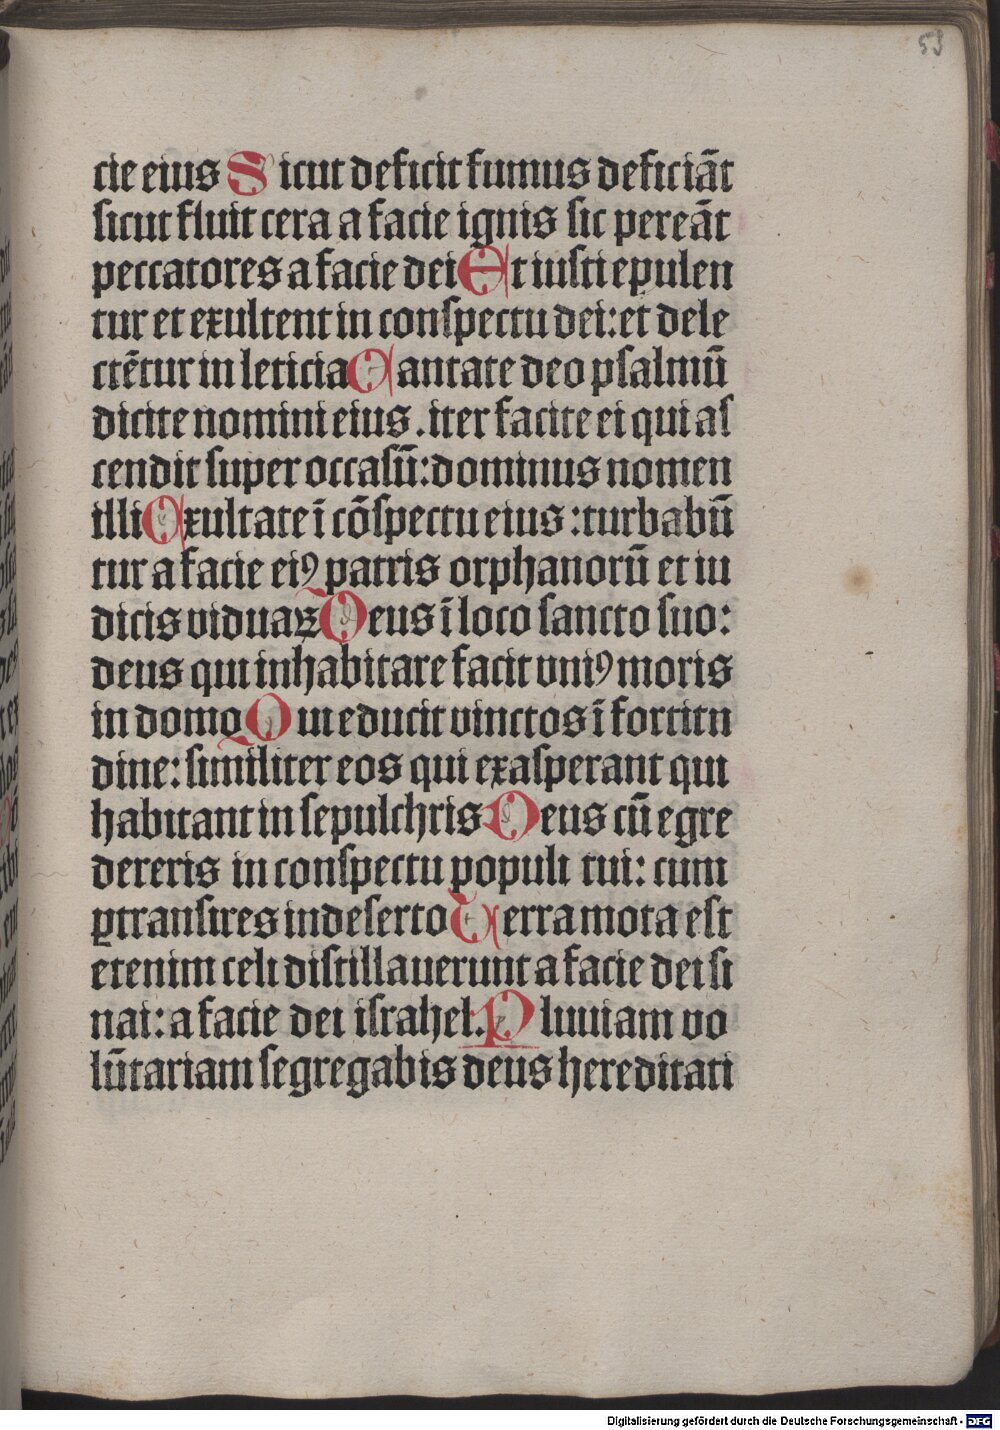 59
cie eius Sicut deficit fumus deficiāt
sicut fluit cera a facie ignis sic pereāt
peccatores a facie dei Et iusti epulen
tur et exultent in conspectu dei: et dele
ctētur in leticia Cantate deo psalmū
dicite nomini eius . iter facite ei qui as
cendit super occasū: dominus nomen
illi Exultate ī cōspectu eius : turbabū
tur a facie eiꝰ patris orphanorū et iu
dicis viduaꝝ Deus ī loco sancto suo:
deus qui inhabitare facit vniꝰ moris
in domo Qui educit vinctos ī fortitu
dine: similiter eos qui exasperant qui
habitant in sepulchris Deus cū egre
dereris in conspectu populi tui: cum
ꝑtransires in deserto Terra mota est
etenim celi distillauerunt a facie dei si
nai: a facie dei israhel. Pluuiam vo
lūtariam segregabis deus hereditati
Digitalisierung gefördert durch die Deutsche Forschungsgemeinschaft - DFG